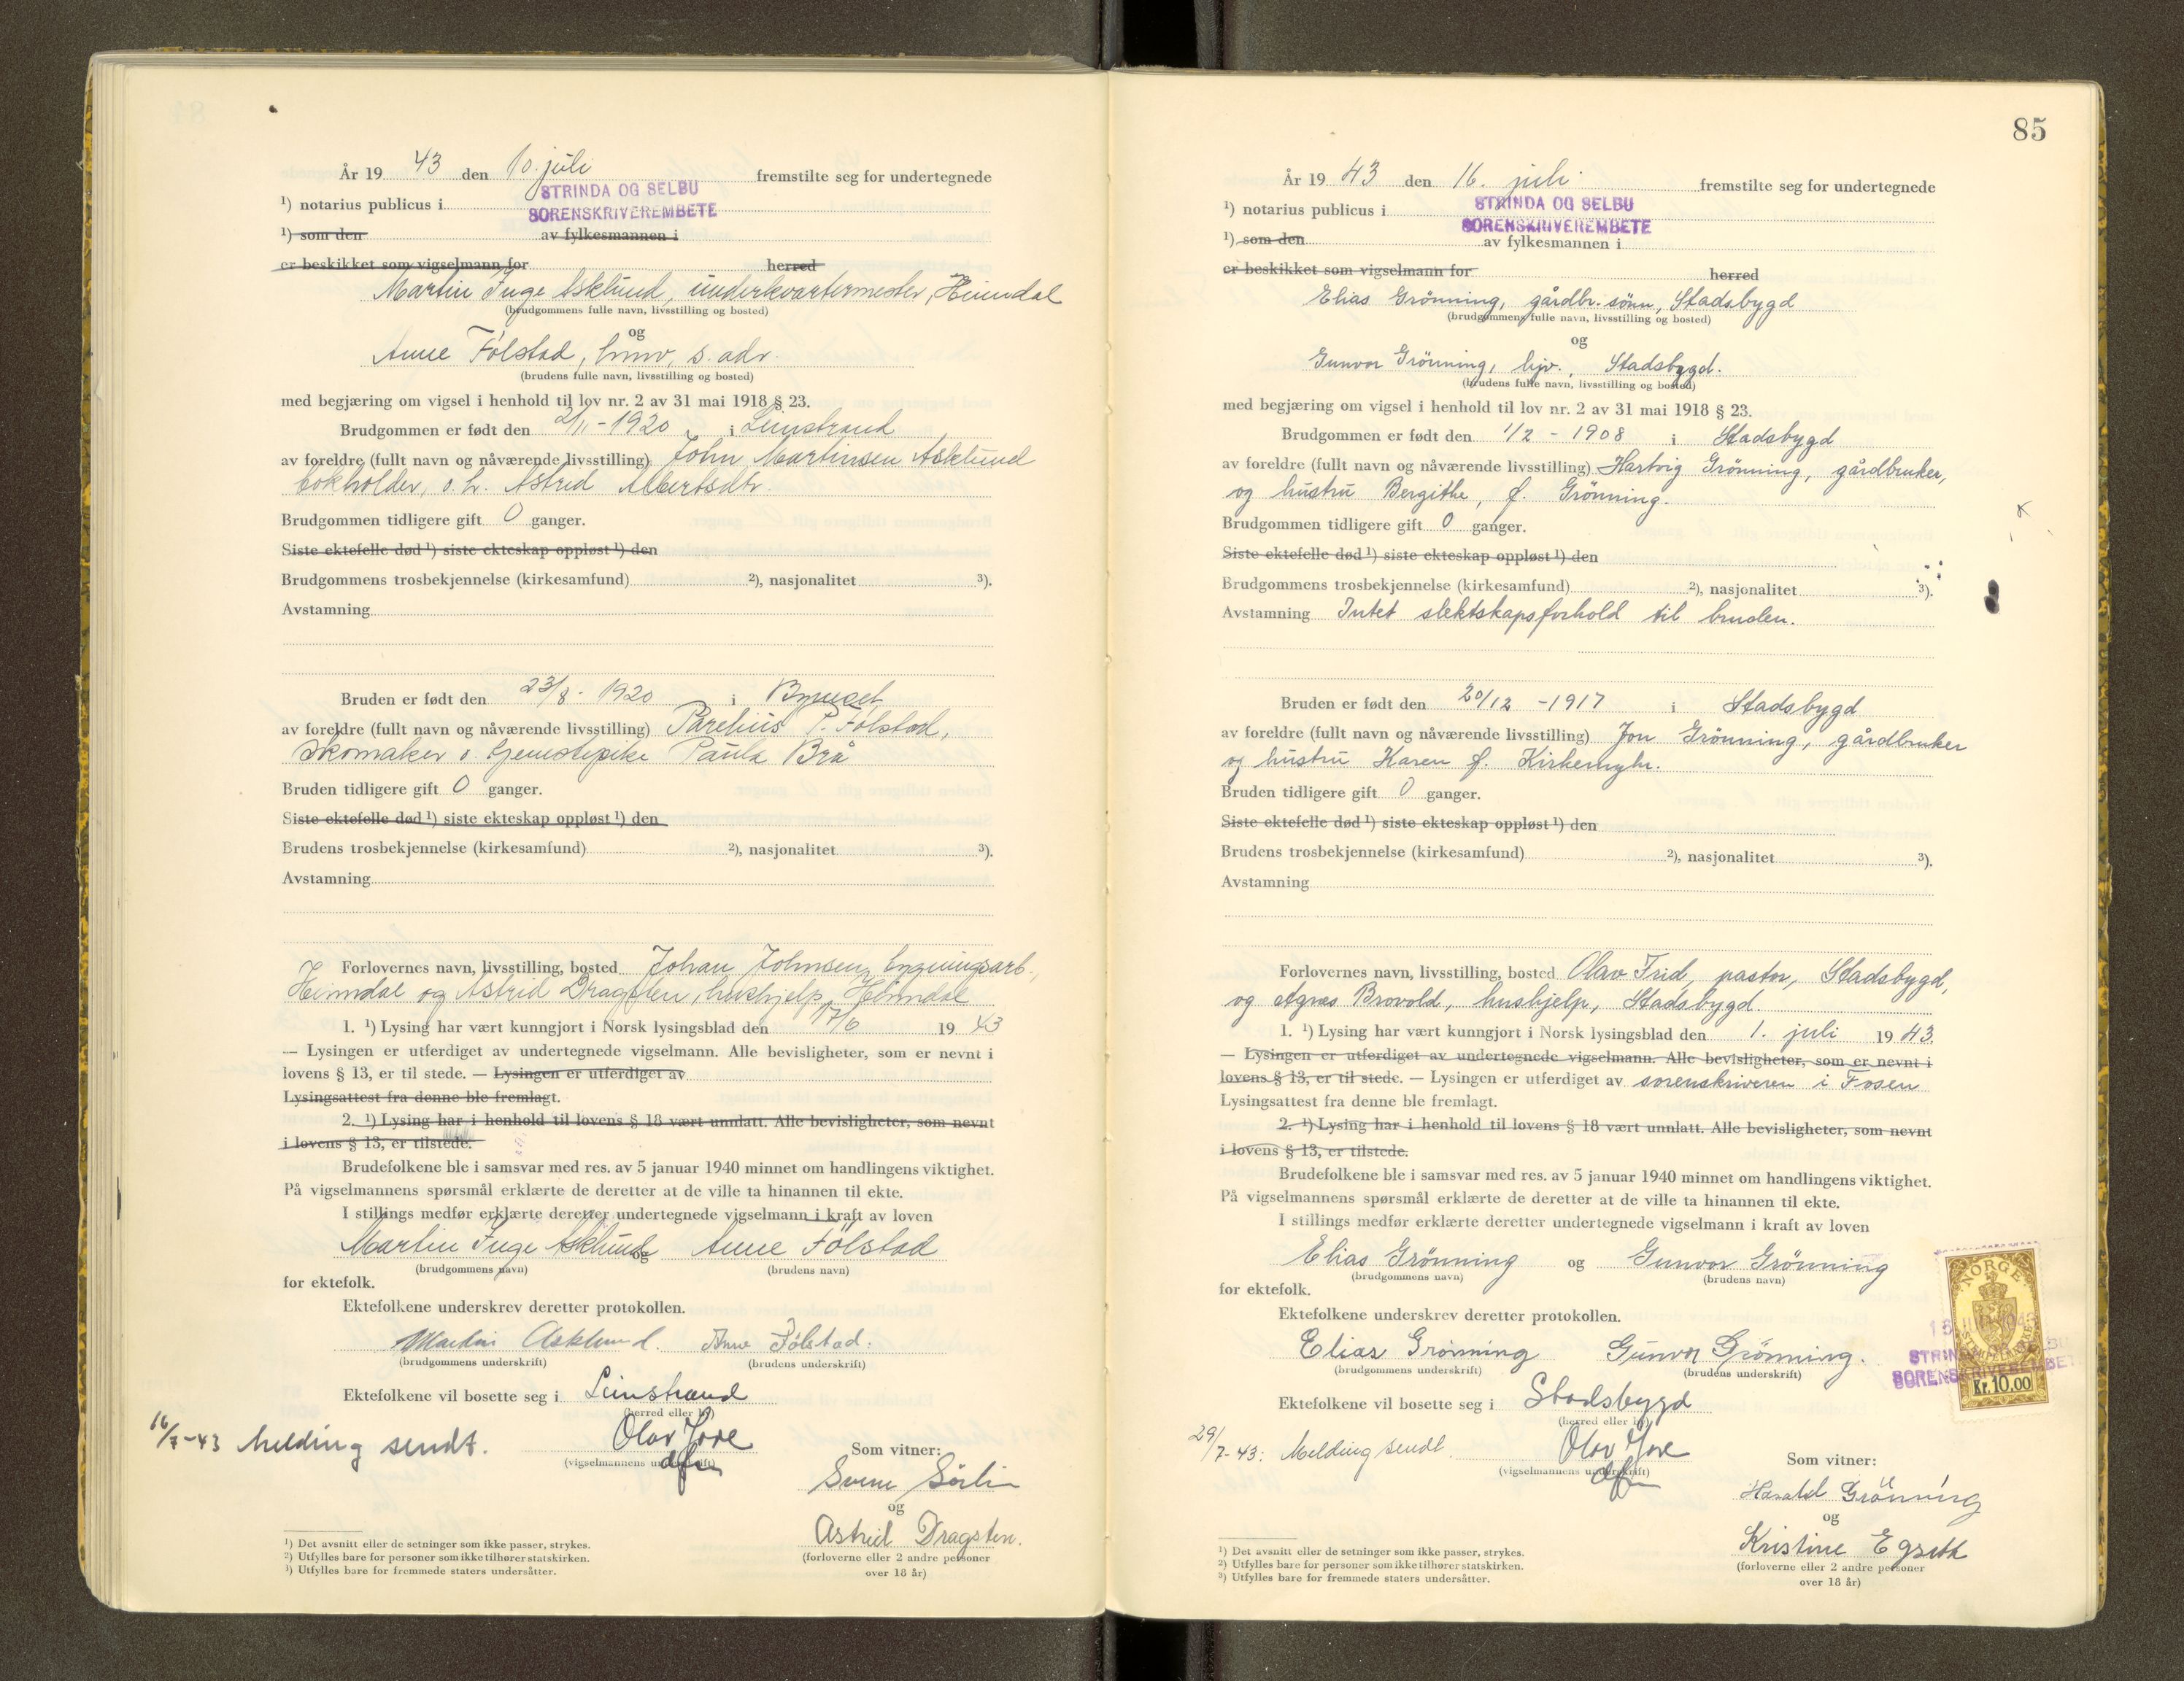 År 19 43 den 10. juli fremstilte seg for undertegnede
STRINDA OG SELBU
¹) notarius publicus i SORENSKRIVEREMBETE
¹) som den av fylkesmannen i
er beskikket som vigselmann for herred
Martin Inge Asklund, underkvartermester, Heimdal
(brudgommens fulle navn, livsstilling og bosted)
og
Anne Fölstad, s. adr.
(brudens fulle navn, livsstilling og bosted)
med begjæring om vigsel i henhold til lov nr. 2 av 31 mai 1918 § 23.
Brudgommen er født den 2/11-1920 i Leinstrand
av foreldre (fullt navn og nåværende livsstilling) John Martinsen Asklund
bokholder, o. h. Astrid Albertsdtr.
Brudgommen tidligere gift 0 ganger.
Siste ektefelle død ¹) siste ekteskap oppløst ¹) den
Brudgommens trosbekjennelse (kirkesamfund) ²), nasjonalitet ³).
Avstamning
Bruden er født den 23/8 - 1920 i Byneset
av foreldre (fullt navn og nåværende livsstilling) Parelius P. Fölstad,
skomaker o. tjenestepike Paula Brå
Bruden tidligere gift 0 ganger.
Siste ektefelle død ¹) siste ekteskap oppløst ¹) den
Brudens trosbekjennelse (kirkesamfund) ²), nasjonalitet ³).
Avstamning
Forlovernes navn, livsstilling, bosted Johan Johnsen, bygningsarb.,
Heimdal og Astrid Dragsten, hushjelp, Heimdal
1. ¹) Lysing har vært kunngjort i Norsk lysingsblad den 17/6 19 43
— Lysingen er utferdiget av undertegnede vigselmann. Alle bevisligheter, som er nevnt i
lovens § 13, er til stede. — Lysingen er utferdiget av
Lysingsattest fra denne ble fremlagt.
2. ¹) Lysing har i henhold til lovens § 18 vært unnlatt. Alle bevisligheter, som nevnt
i lovens § 13, er tilstede.
Brudefolkene ble i samsvar med res. av 5 januar 1940 minnet om handlingens viktighet.
På vigselmannens spørsmål erklærte de deretter at de ville ta hinannen til ekte.
I stillings medfør erklærte deretter undertegnede vigselmann i kraft av loven
Martin Inge Asklund og Anne Fölstad
(brudgommens navn) (brudens navn)
for ektefolk.
Ektefolkene underskrev deretter protokollen.
Martin Asklund. Anne Fölstad.
(brudgommens underskrift) (brudens underskrift)
Ektefolkene vil bosette seg i Leinstrand
(herred eller by)
16/7-43 melding sendt. Olav Jore
(vigselmannens underskrift)
dfm
Som vitner:
Svein Sörli
og
Astrid Dragsten.
(forloverne eller 2 andre personer
over 18 år)
¹) Det avsnitt eller de setninger som ikke passer, strykes.
²) Utfylles bare for personer som ikke tilhører statskirken.
³) Utfylles bare for fremmede staters undersåtter.
85
År 19 43 den 16. juli fremstilte seg for undertegnede
STRINDA OG SELBU
¹) notarius publicus i SORENSKRIVEREMBETE
¹) som den av fylkesmannen i
er beskikket som vigselmann for herred
Elias Grönning, gårdbr. sönn, Stadsbygd
(brudgommens fulle navn, livsstilling og bosted)
og
Gunvor Grönning, hjv., Stadsbygd.
(brudens fulle navn, livsstilling og bosted)
med begjæring om vigsel i henhold til lov nr. 2 av 31 mai 1918 § 23.
Brudgommen er født den 1/2 - 1908 i Stadsbygd
av foreldre (fullt navn og nåværende livsstilling) Hartvig Grönning, gårdbruker,
og hustru Bergithe, f. Grönning.
Brudgommen tidligere gift 0 ganger.
Siste ektefelle død ¹) siste ekteskap oppløst ¹) den
Brudgommens trosbekjennelse (kirkesamfund) ²), nasjonalitet ³).
Avstamning Intet slektskapsforhold til bruden.
Bruden er født den 20/12 -1917 i Stadsbygd
av foreldre (fullt navn og nåværende livsstilling) Jon Grönning, gårdbruker
og hustru Karen f. Kirkemyhr.
Bruden tidligere gift 0 ganger.
Siste ektefelle død ¹) siste ekteskap oppløst ¹) den
Brudens trosbekjennelse (kirkesamfund) ²), nasjonalitet ³).
Avstamning
Forlovernes navn, livsstilling, bosted Olav Frid, pastor, Stadsbygd,
og Agnes Brovold, hushjelp, Stadsbygd.
1. ¹) Lysing har vært kunngjort i Norsk lysingsblad den 1. juli 19 43.
— Lysingen er utferdiget av undertegnede vigselmann. Alle bevisligheter, som er nevnt i
lovens § 13, er til stede. — Lysingen er utferdiget av sorenskriveren i Fosen
Lysingsattest fra denne ble fremlagt.
2. ¹) Lysing har i henhold til lovens § 18 vært unnlatt. Alle bevisligheter, som nevnt
i lovens § 13, er tilstede.
Brudefolkene ble i samsvar med res. av 5 januar 1940 minnet om handlingens viktighet.
På vigselmannens spørsmål erklærte de deretter at de ville ta hinannen til ekte.
I stillings medfør erklærte deretter undertegnede vigselmann i kraft av loven
Elias Grönning og Gunvor Grönning
(brudgommens navn) (brudens navn)
for ektefolk.
Ektefolkene underskrev deretter protokollen.
Elias Grönning Gunvor Grönning.
(brudgommens underskrift) (brudens underskrift)
NORGE
Kr. 10.00
Ektefolkene vil bosette seg i Stadsbygd
(herred eller by)
29/7-43: Melding sendt Olav Jore
(vigselmannens underskrift)
dfm
Som vitner:
Harald Grönning
og
Kristine Egseth
(forloverne eller 2 andre personer
over 18 år)
¹) Det avsnitt eller de setninger som ikke passer, strykes.
²) Utfylles bare for personer som ikke tilhører statskirken.
³) Utfylles bare for fremmede staters undersåtter.